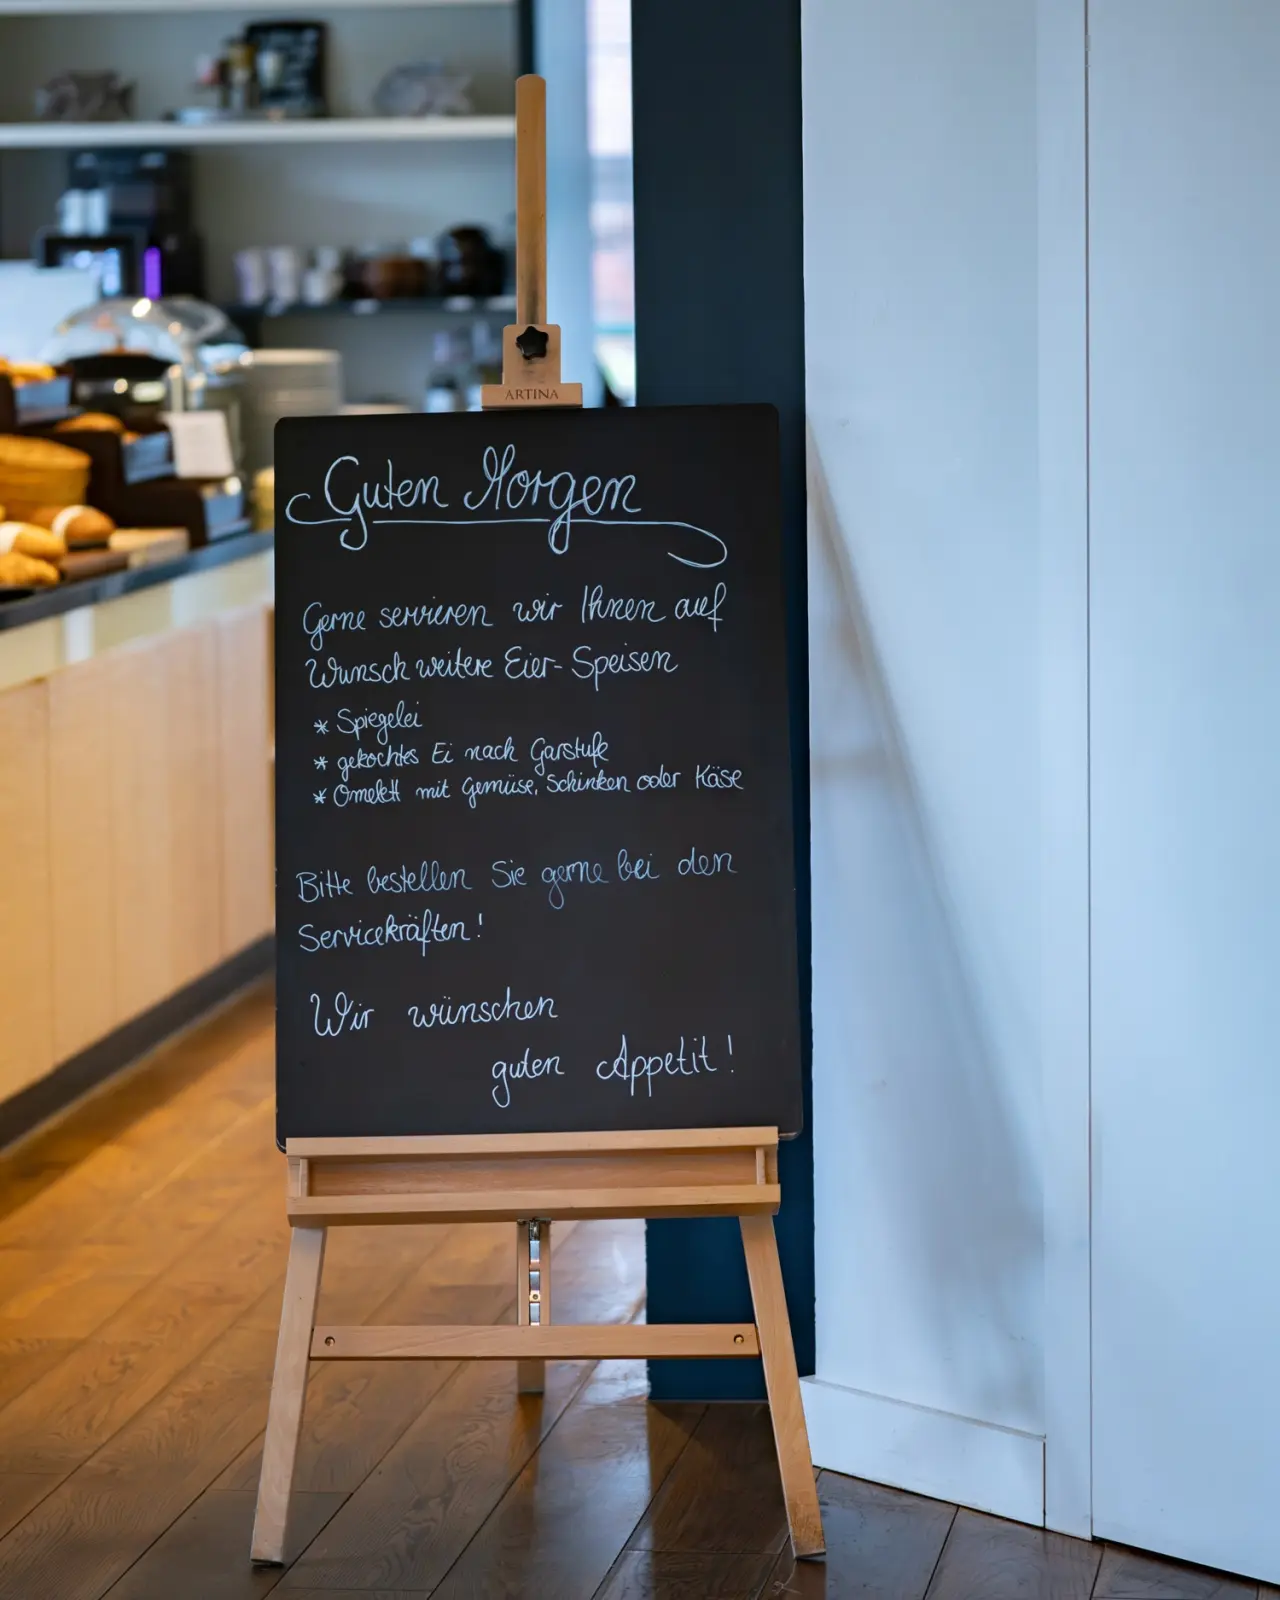 ARTINA
Guten Morgen
Gerne servieren wir Ihnen auf
Wunsch weitere Eier-Speisen
* Spiegelei
* gekochtes Ei nach Garstufe
* Omelett mit Gemüse, Schinken oder Käse
Bitte bestellen Sie gerne bei den
Servicekräften!
Wir wünschen
guten Appetit!